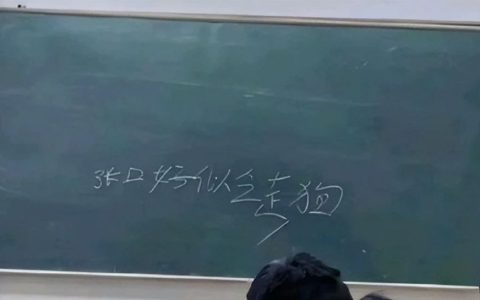 张口好似仝走狗